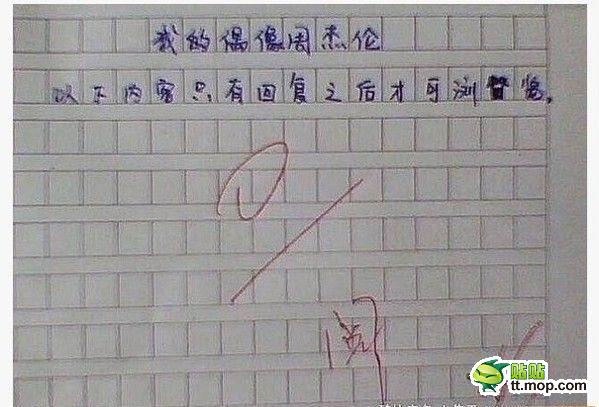 我的偶像周杰伦
以下内容只有回复之后才可浏览。
阅
站站
tt.mop.com